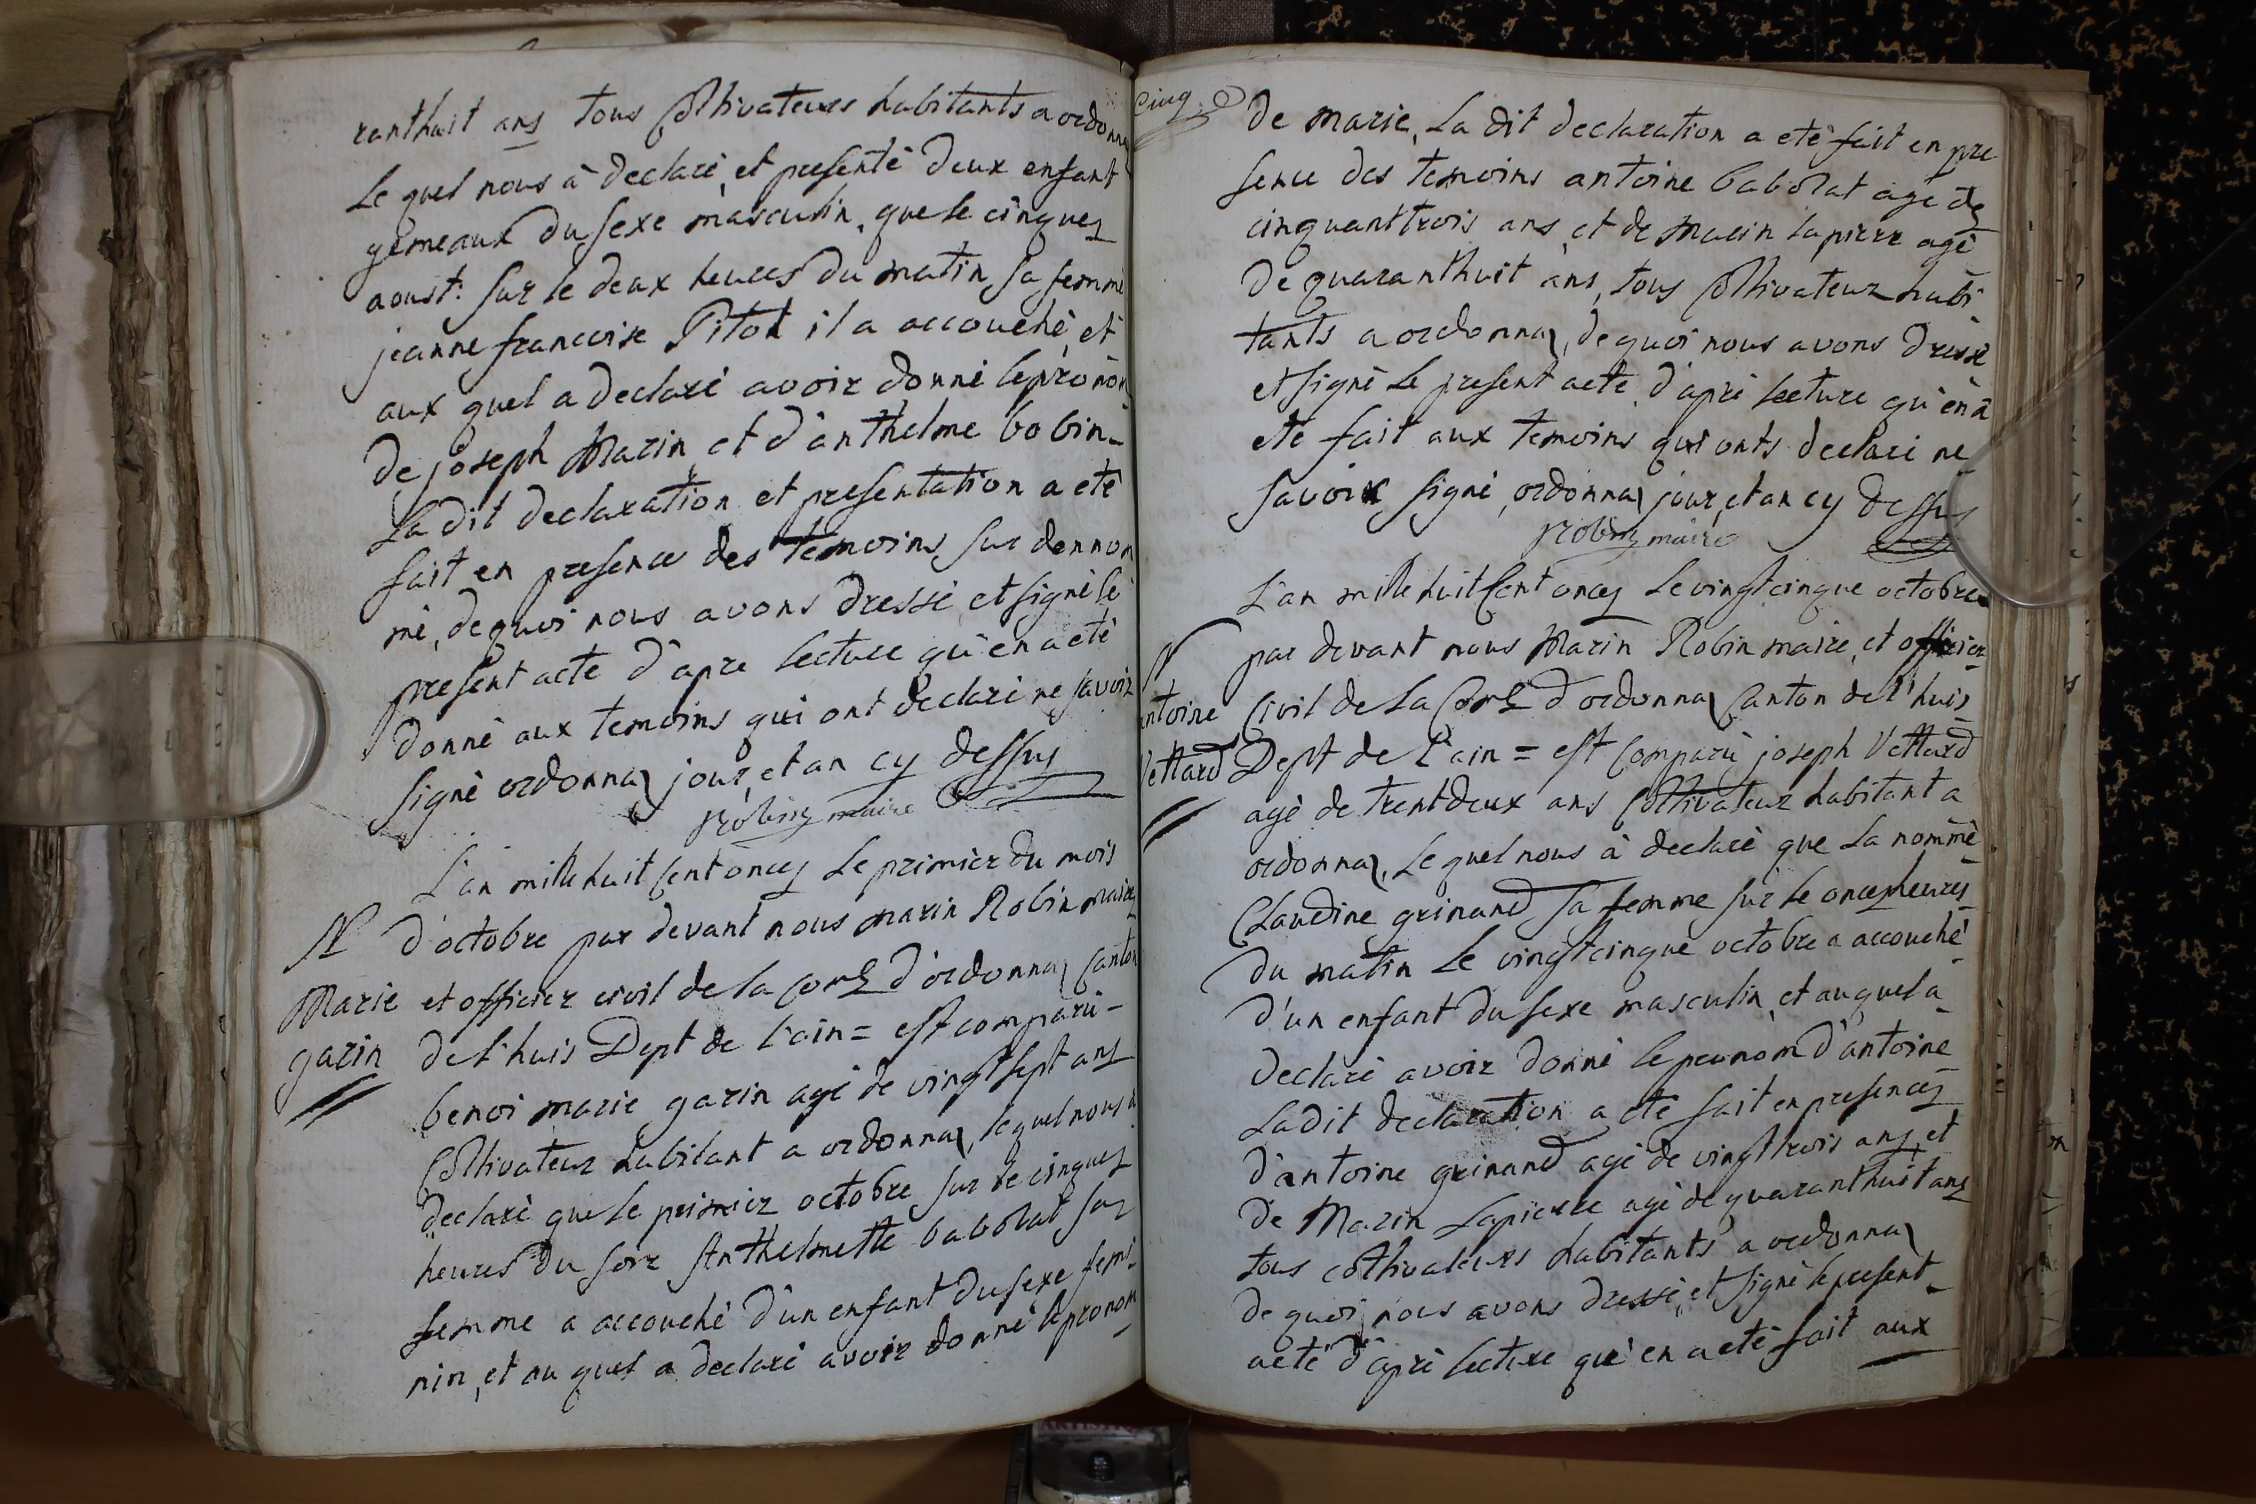 ranthuit ans tous Cottivateurs habitants a ordonna
Le quel nous à declaré, et presenté deux enfant
gemeaux du sexe masculin, que le cinques
aoust: sur le deux heures du matin sa femme
jeanne francoise Pitot il a accouché, et
aux quel a declaré avoir donné le pronom
de joseph Marin et d'anthelme bobin-
La dit declaration et presentation a eté
fait en presence des temoins sur dennom
mé, de quoi nous avons dressé et signé le
present acte d'apre lecture qu'en a eté
donné aux temoins qui ont declaré ne savoir
signé ordonnaz jour, et an cy dessus
Robin maire
L'an mille huit Cent onces Le primier du mois
N d'octobre par devant nous marin Robin maire
Marie et officier civil de la Com d'ordonnaz Canton
garin de l'huis Dept de l'ain = est comparu-
benoi marie garin agé de vingt sept ans
Cottivateur habitant a ordonnaz, le quel nous a
declaré que le primier octobre sur le cinques
heures du soir Anthelmette babolat sa
femme a accouché d'un enfant du sexe femi-
nin, et au quel a declaré avoir donné le pronom
Cinq
de marie, La dit declaration a eté fait en pre
sence des temoins antoine babolat agé de
cinquant trois ans et de Marin Lapierre agé
de quaranthuit ans, tous Cottivateur habi
tants a ordonnaz, de quoi nous avons dressé
et signé Le present acte d'apré lecture qu'en a
eté fait aux temoins qui onts declaré ne
savoir signé, ordonnaz jour, et an cy dessus
Robin maire
L'an mille huit Cent onces Le vingt cinque octobre
N par devant nous Marin Robin maire, et officier
antoine Civil de La Com d'ordonnaz Canton de l'huis
Vettard Dept de L'ain = est Comparu joseph Vettard
agé de trent deux ans Cottivateur habitant a
ordonnaz, Le quel nous à declaré que La nommé
Claudine grinand sa femme sur le onces heures
du matin Le vingt cinque octobre a accouché
d'un enfant du sexe masculin, et au quel a
declaré avoir donné le prenom d'antoine
La dit declaration a eté fait en presences
d'antoine grinand agé de vingt trois ans, et
de Marin Lapierre agé de quaranthuit ans
tous cottivateurs habitants a ordonnaz
de quoi, nous avons dressé, et signé le present-
acte d'apré lecture que en a eté fait aux